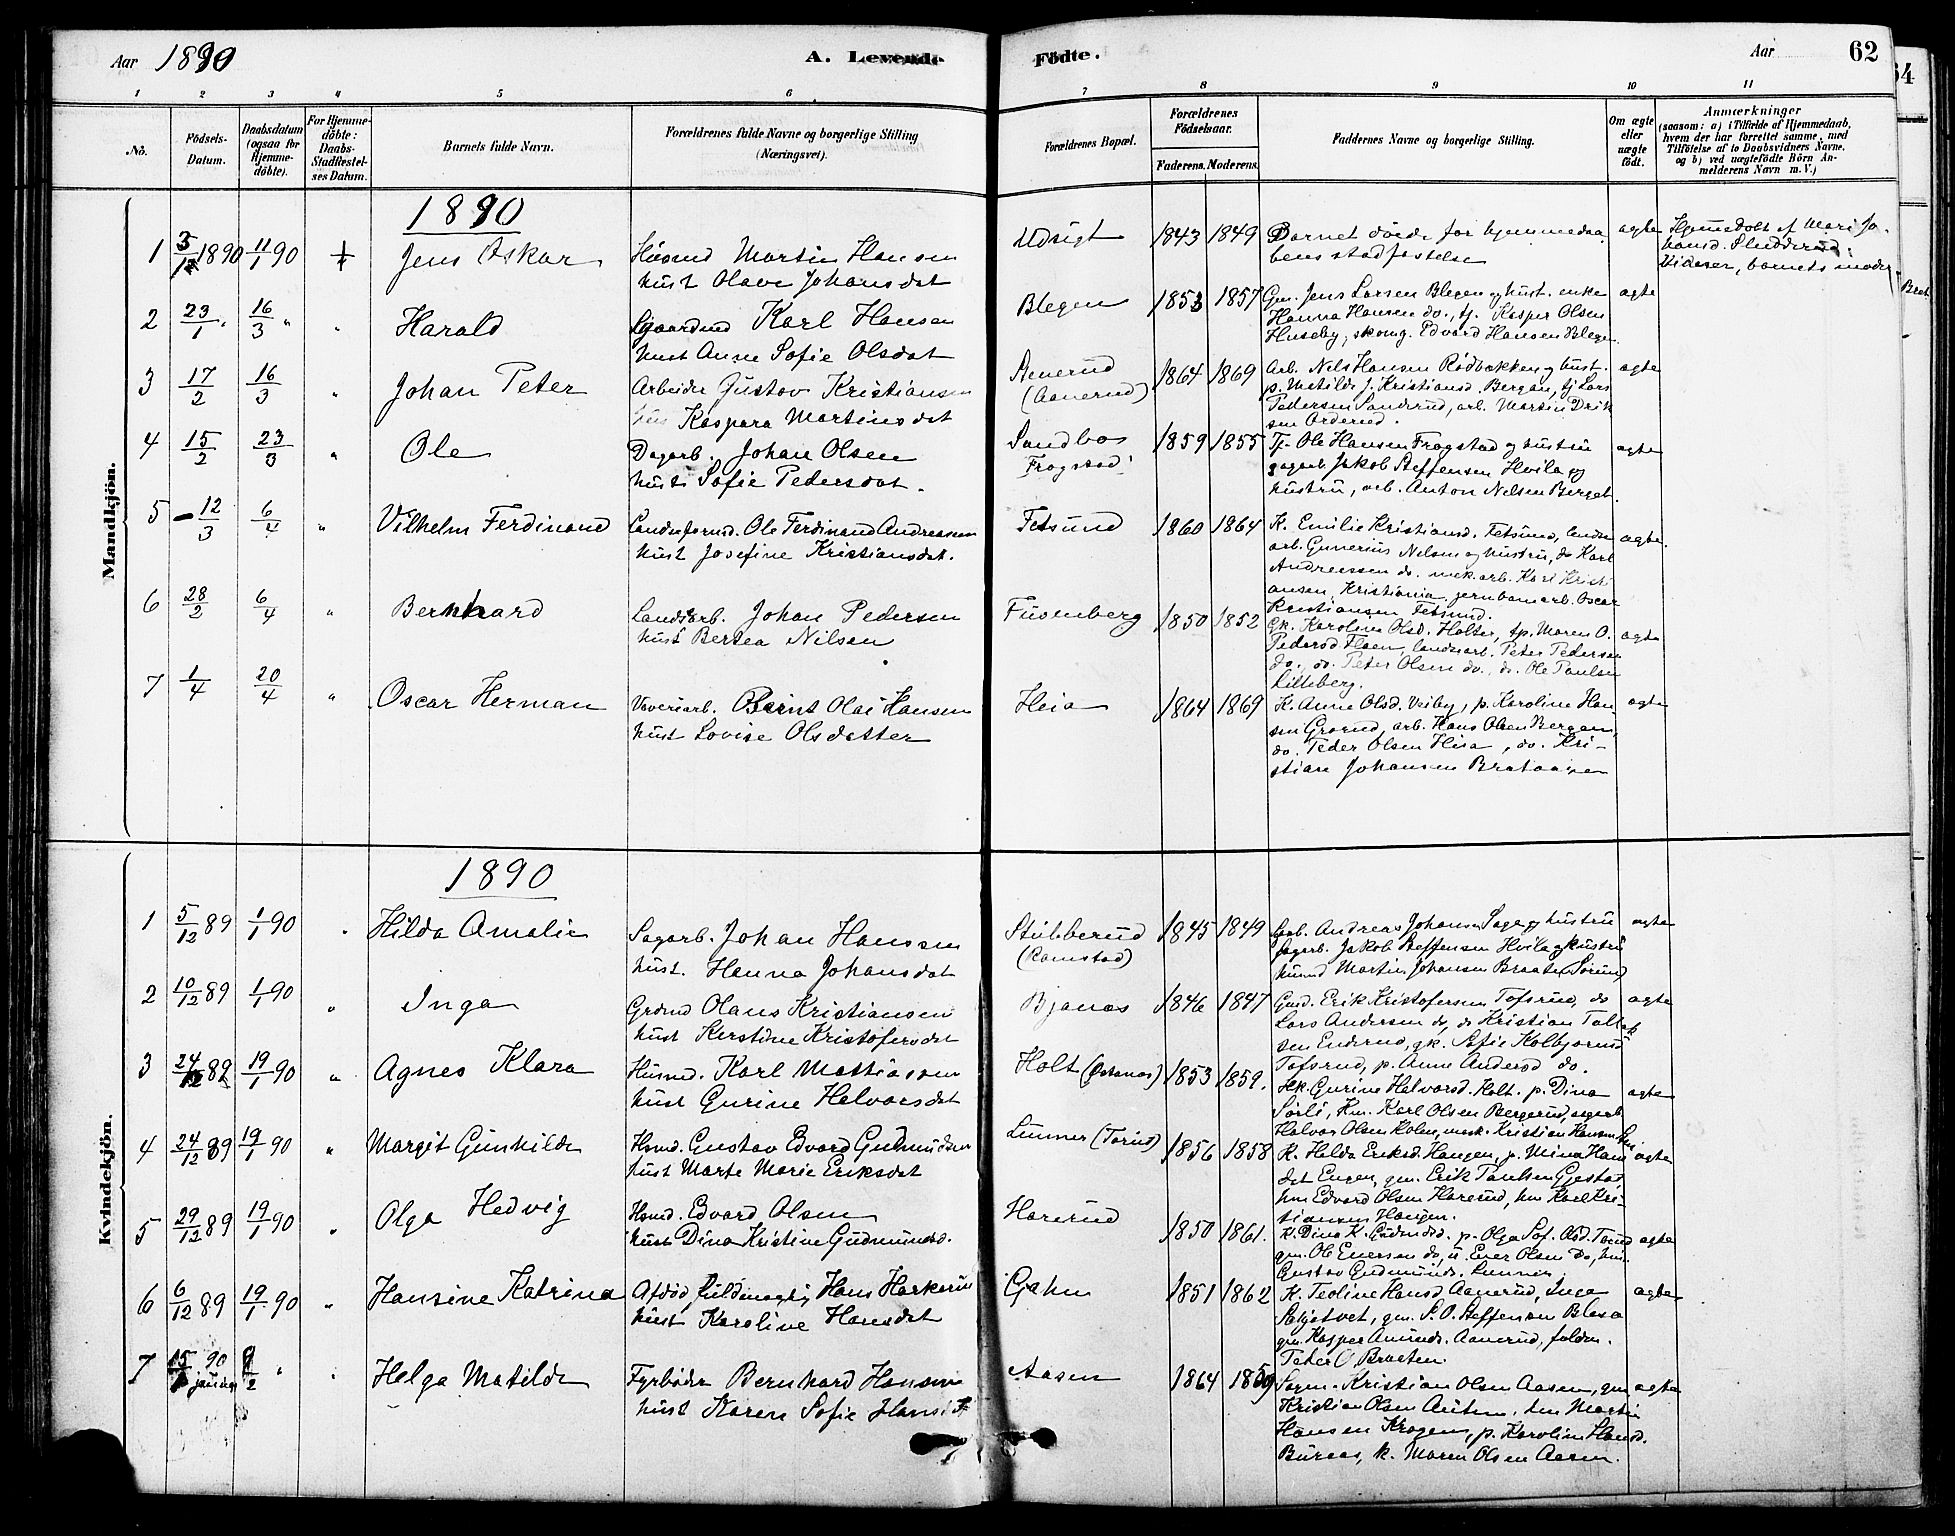 Aar 1890
A. Levende
Födte.
Aar
62
1 2 3 4 5 6 7 8 9 10 11
No.
Födsels-Datum.
Daabsdatum (ogsaa for Hjemmedöbte).
For Hjemmedöbte: Daabs-Stadfæstelses Datum.
Barnets fulde Navn.
Forældrenes fulde Navne og borgerlige Stilling (Næringsvei).
Forældrenes Bopæl.
Forældrenes Födselsaar.
Faderens. Moderens.
Faddernes Navne og borgerlige Stilling.
Om ægte eller uægte födt.
Anmærkninger
(saasom: a) i Tilfælde af Hjemmedaab, hvem der har forrettet samme, med Tilföielse af to Daabsvidners Navne, og b) ved uægtefödte Börn Anmelderens Navn m. V.)
Mandkjön.
1890
1 1890 11/1 90 Jens Oskar
Husmd Martin Hansen
hust Olave Johansdat
Udsigt 1843 1849
Barnet døede før hjemmedaabens stadfæstelse
ægte
Hjemmedøbt af Mari Johansd. Sludderud
Vidner, barnets moder
2 23/1 " 16/3 " " Harald
Sgaardmd Karl Hansen
hust Anne Sofie Olsdat
Blegen 1853 1857
Gm. Jens Larsen Blegen og hust. enke
Hanna Hansen do., tj. Kasper Olsen
Huseby, skomg. Edvard Hansen Blegen
ægte
3 17/2 16/3 " Johan Peter
Arbeider Gustav Kristiansen
hus Kaspara Martinsdat
Aenerud (Aanerud) 1864 1869
Arb. Nils Hansen Rødbakken og hust.
p. Matilde J. Kristiansd. Bergan, tj Lars
Pedersen Sanderud, arb. Martin Drik
sen Orderud.
ægte
4 15/2 23/3 " Ole
Dagarb. Johan Olsen
hust. Sofie Pedersdat.
Sandbos Frogstad 1859 1855
Tj. Ole Hansen Frogstad og hustru
sagarb. Jakob Steffensen Hvila og
hustru, arb. Anton Nilsen Berget.
ægte
5 12/3 6/4 " Vilhelm Ferdinand
Landseformd. Ole Ferdinand Andreasen
hust Josefine Kristiansdat.
Fetsund 1860 1864
K. Emilie Kristiansd. Fetsund, lendse
arb. Gunerius Nilsen og hustru, do Karl
Andreassen do. mek. arb. Karl Kristi
ansen, Kristiania, jernbanearb. Oscar
Kristiansen Fetsund.
ægte.
6 28/2 6/4 " Bernhard
Landsarb. Johan Pedersen
hust Bertea Nilsen
Fusenberg 1850 1852
Gk. Karoline Olsd. Holter, tp. Maren O.
Pedersd Floen, landsearb. Peter Pedersen
do., do. Peter Olsen do., do. Ole Paulsen
Lilleberg.
ægte
7 1/4 20/4 " Oscar Herman
Væveriarb. Bernt Olai Hansen
hust Lovise Olsdatter
Heia 1864 1869
K. Anne Olsd. Veiby, p. Karoline Han
sen Grorud, arb. Hans Olsen Bergan,
do. Peder Olsen Heia, do. Kri-
stian Johansen
ægte
Kvindekjön.
1890
1 5/12 89 1/1 90 Hilda Amalie
Sagarb. Johan Hansen
hust. Hanna Johansdat
Stubberud (Ramstad) 1845 1849
Sarb. Andreas Johans Sage og hustru
Sagarb. Jakob Steffensen Hvila og hustru
husmd Martin Johansen Braaten (Sørum)
ægte
2 10/12 89 1/1 90 " Inga
Grdmd Olaus Kristiansen
hust Kerstine Kristofersdat
Bjanes 1846 1847
Gmd. Erik Kristofersen Tofsrud, do
Lars Andersen do, do Kristian Tollef
sen Enderud, gk. Sofie Kolbjornsd
Tofsrud, p. Anne Andersd do.
ægte
3 24/12 89 19/1 90 " Agnes Klara
Husmd. Karl Mathiasen
hust Gurine Halvorsdat
Holt (Østenas) 1853 1859.
Hk. Gurine Halvorsd. Holt. p. Dina
Sørli, Hm. Karl Olsen Bergerud, sagarb
Halvor Olsen Holm, mosk. Kristian Hansen
ægte
4 24/12 89 19/1 90 " Margit Gunhilde
Hsmd. Gustav Edvard Gudmundsen
hust Marte Marie Eriksdat
Lunner (Toriis) 1856 1858
K. Hilda Eriksd. Haugen, p. Mina Hans
det Engen, gm. Erik Paulsen Gjestad,
hm Edvard Olsen Harerud, hm Karl Kri-
stiansen Haugen.
ægte
5 29/12 89 19/1 90 " Olga Hedvig
Hsmd. Edvard Olsen
hust Dina Kristine Gudmundsd.
Harerud 1850 1861.
K. Dina K. Gudmdsd. p. Olga Sof. Olsd. Tveud
gm. Ole Evensen do, u. Ever Olsen do, hm.
Gustav Gudmunds. Lunner.
ægte
6 6/12 89 19/1 90 " Hansine Katrina
Afdød fuldmægtig Hans Harkerud
hust Karoline Hansdat
Gahn 1851 1862
K. Teoline Hansd Aanerud, Inga
Skjetvet, gm. S. O. Steffensen Blesa
gm. Kasper Amunds. Aanerud, foldm.
Peter O. Braaten.
ægte
7 15 90 januar 9/2 " Helga Matilde
Fyrbøder Bernhard Hansen
hust Karen Sofie Hansd
Aasen 1864 1859
Sagm. Kristian Olsen Aasen, gm
Kristian Olsen Asten, hm Martin
Hansen Krogen, p. Karoline Hansd.
Buraas, k. Maren Olsen Aasen.
ægte